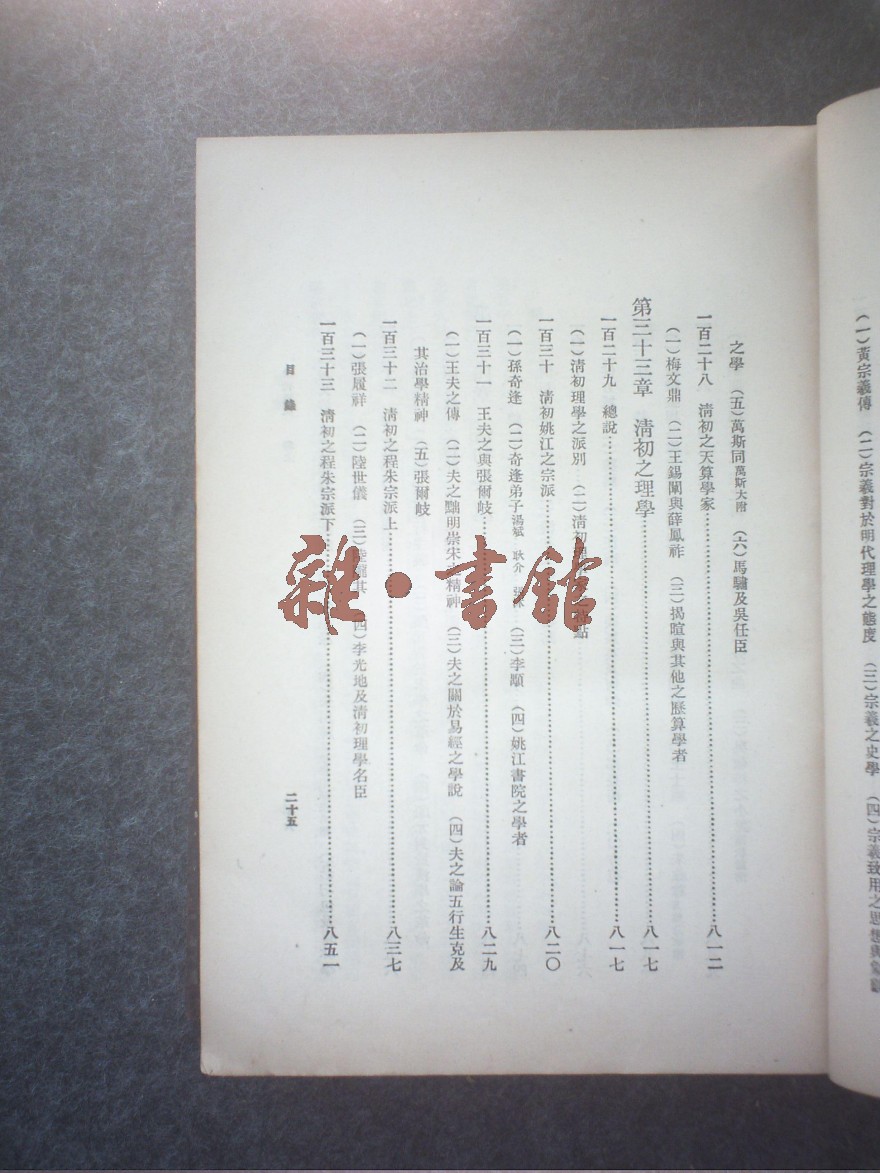 (一)黃宗羲傳 (二)宗羲對於明代理學之態度 (三)宗羲之史學 (四)宗羲致用之思想與
之學 (五)萬斯同萬斯大附 (六)馬驌及吳任臣
一百二十八 淸初之天算學家……八一二
(一)梅文鼎 (二)王錫闡與薛鳳祚 (三)揭暄與其他之歷算學者
第三十三章 淸初之理學……八一七
一百二十九 總說……八一七
(一)淸初理學之派別 (二)淸初點
一百三十 淸初姚江之宗派……八二〇
(一)孫奇逢 (二)奇逢弟子湯斌 耿介 張沐 (三)李顒 (四)姚江書院之學者
一百三十一 王夫之與張爾岐……八二九
(一)王夫之傳 (二)夫之黜明崇宋之精神 (三)夫之關於易經之學說 (四)夫之論五行生克及
其治學精神 (五)張爾岐
一百三十二 淸初之程朱宗派上……八三七
(一)張履祥 (二)陸世儀 (三)陸隴其 (四)李光地及淸初理學名臣
一百三十三 淸初之程朱宗派下……八五一
目錄
二十五
雜·書館